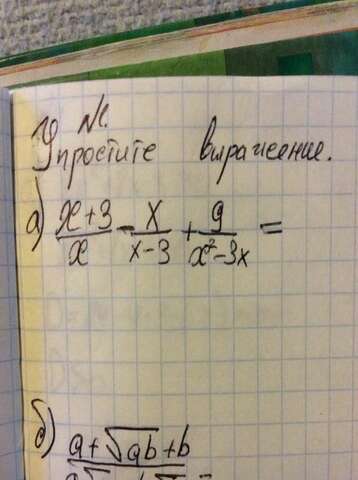 №1.
Упростите выражение.
а) (x+3)/x - x/(x-3) + 9/(x²-3x) =
б) a+√ab+b